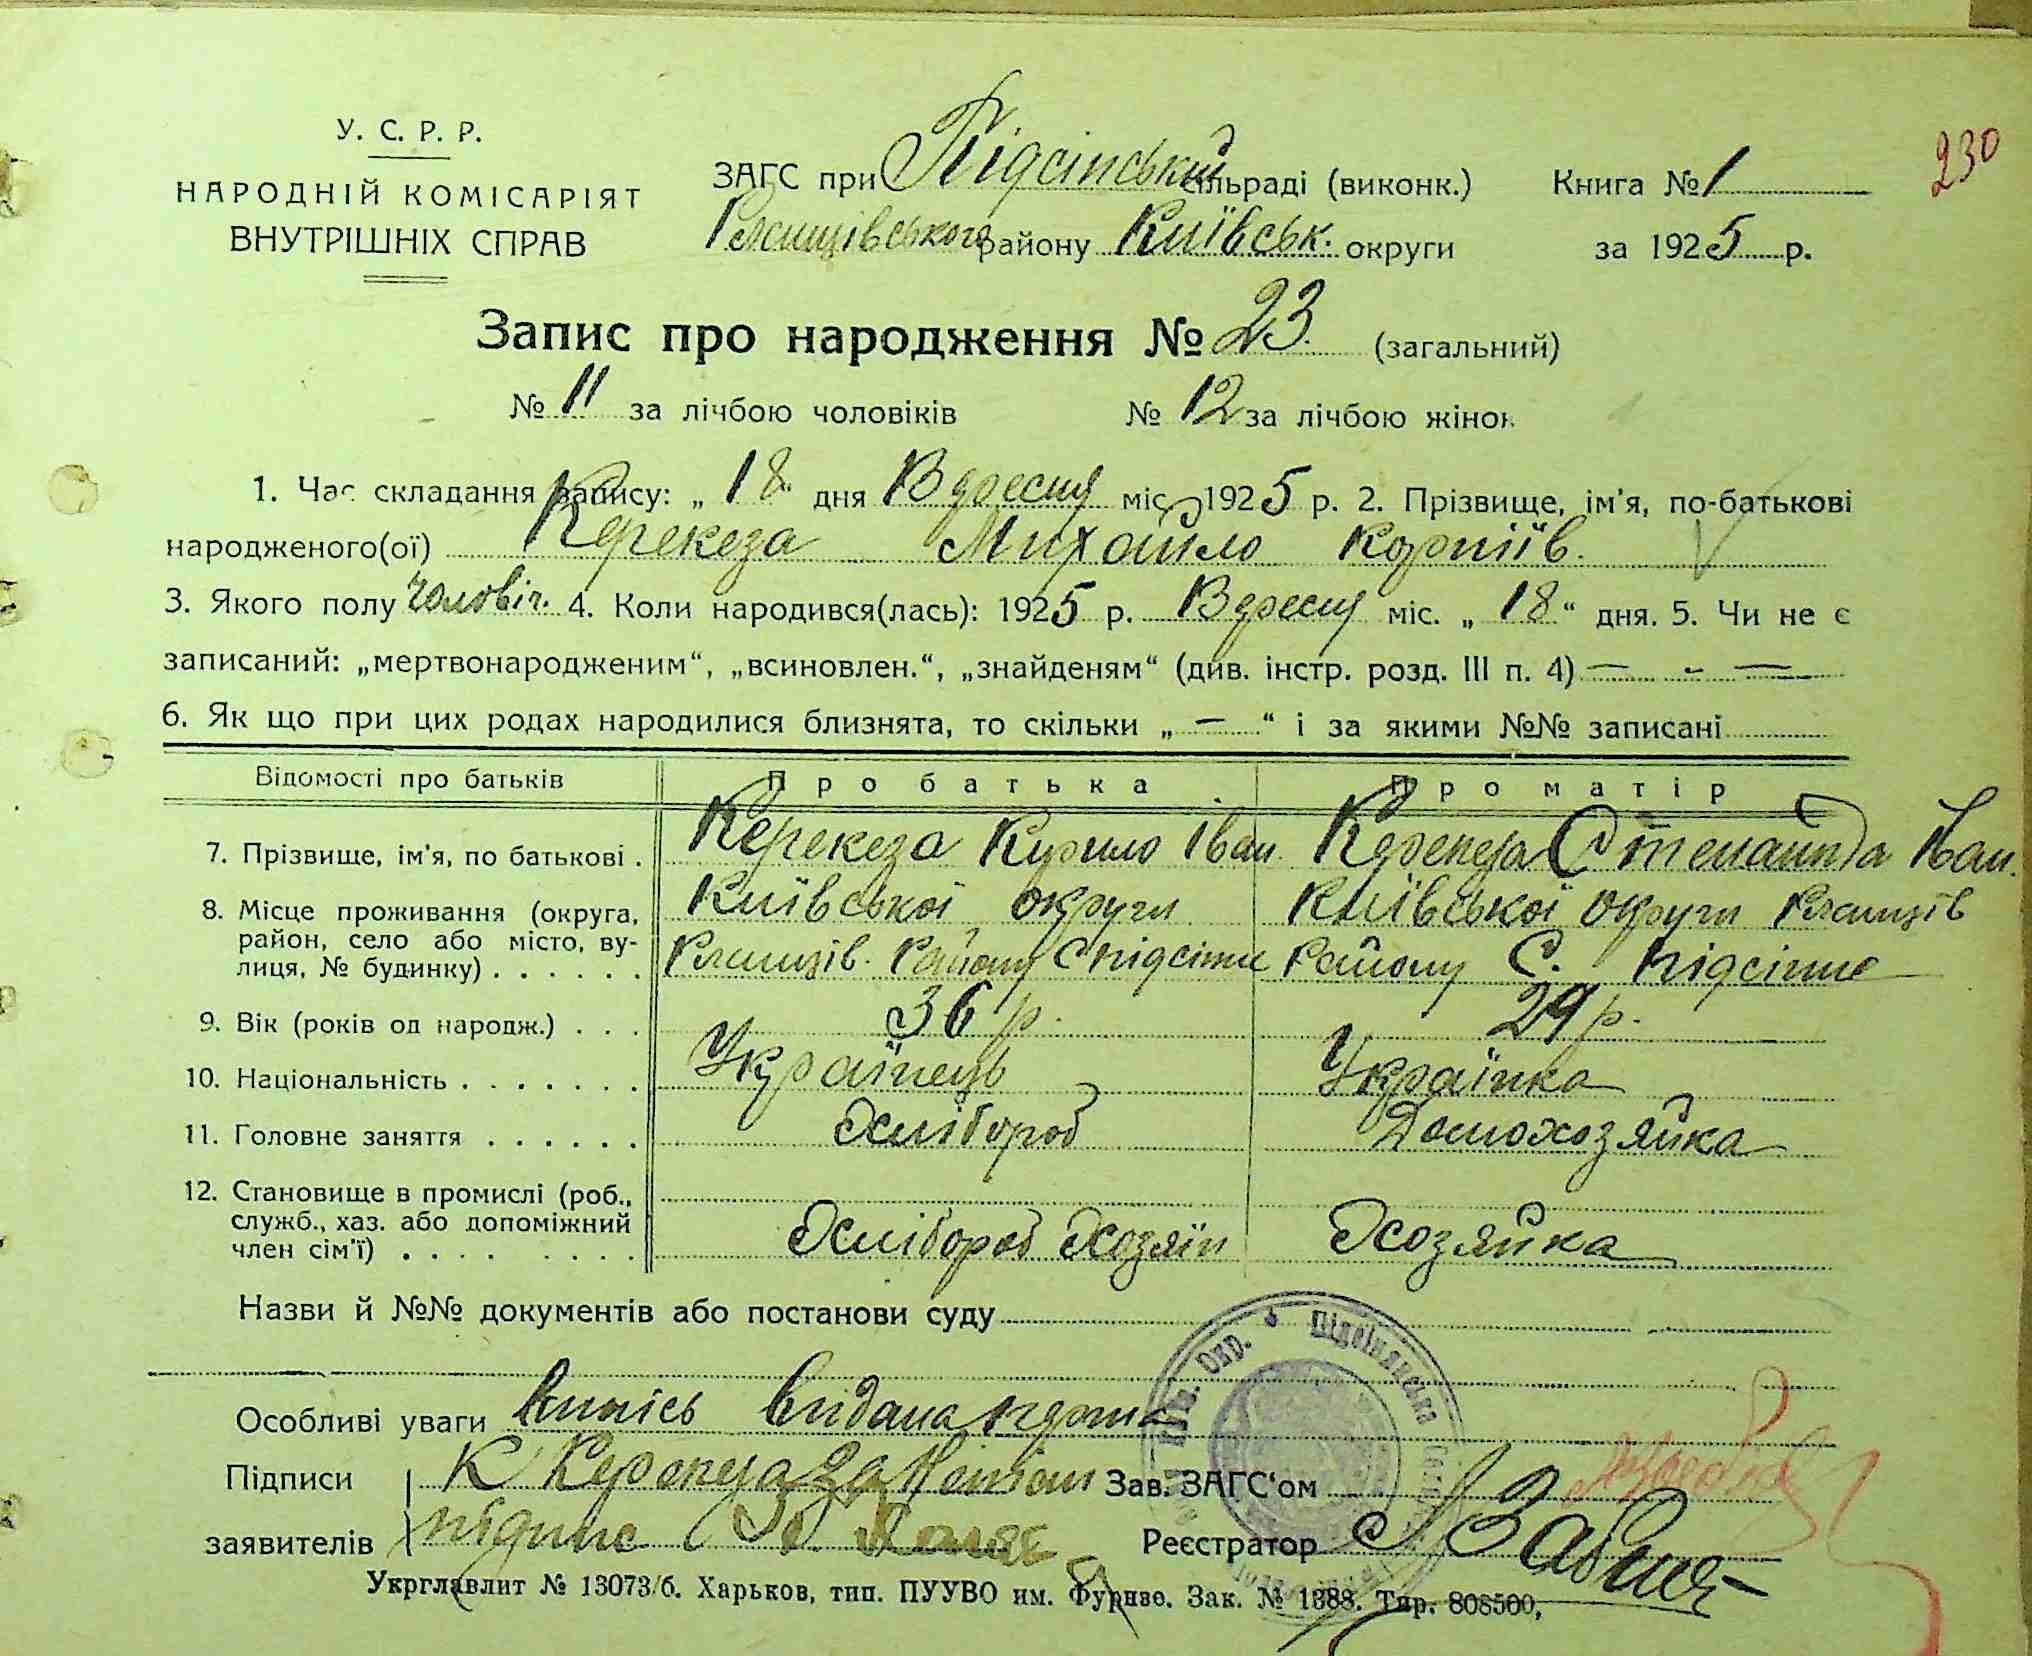 230
У. С. Р. Р.
НАРОДНІЙ КОМІСАРІЯТ
ВНУТРІШНІХ СПРАВ
ЗАГС при Підсінський сільраді (виконк.) Книга № 1
Ржищівського району Київськ. округи за 1925 р.
Запис про народження № 23. (загальний)
№ 11 за лічбою чоловіків № 12 за лічбою жінок
1. Час складання запису: „ 18 " дня Вересня міс. 1925 р. 2. Прізвище, ім'я, по-батькові
народженого(ої) Керекеза Михайло Корніїв.
3. Якого полу Чоловіч. 4. Коли народився(лась): 1925 р. Вересня міс. „ 18 " дня. 5. Чи не є
записаний: „мертвонародженим", „всиновлен.", „знайденям" (див. інстр. розд. III п. 4) — - —
6. Як що при цих родах народилися близнята, то скільки „ — " і за якими №№ записані
Відомості про батьків Про батька Про матір
7. Прізвище, ім'я, по батькові . Керекеза Кирило Іван. Керекеза Степанида Іван.
8. Місце проживання (округа, район, село або місто, вулиця, № будинку) . . . . . .
Київської округи Київської округи Ржищів
Ржищів. Району С Підсінне Району С. Підсінне
9. Вік (років од народж.) . . . 36 р. 29 р.
10. Національність . . . . . . . Українець Українка
11. Головне заняття . . . . . . Хлібороб Домохозяйка
12. Становище в промислі (роб., служб., хаз. або допоміжний член сім'ї) . . . .
Хлібороб Хозяїн Хозяйка
Назви й №№ документів або постанови суду
Особливі уваги Випісь видана
Підписи К Керекеза за Зав. ЗАГС'ом
заявителів підпис Реєстратор
Укрглавлит № 13073/б. Харьков, тип. ПУУВО им. Фрунзе. Зак. № 1388. Тир. 808500,